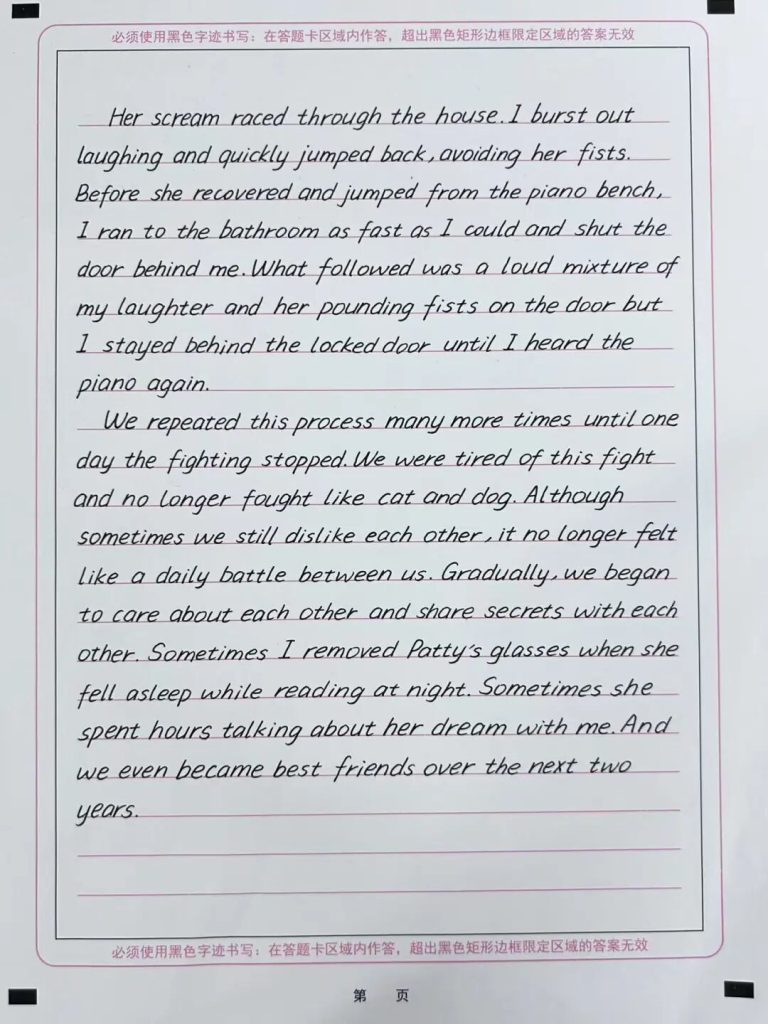 必须使用黑色字迹书写：在答题卡区域内作答，超出黑色矩形边框限定区域的答案无效
Her scream raced through the house. I burst out
laughing and quickly jumped back, avoiding her fists.
Before she recovered and jumped from the piano bench,
I ran to the bathroom as fast as I could and shut the
door behind me. What followed was a loud mixture of
my laughter and her pounding fists on the door but
I stayed behind the locked door until I heard the
piano again.
We repeated this process many more times until one
day the fighting stopped. We were tired of this fight
and no longer fought like cat and dog. Although
sometimes we still dislike each other, it no longer felt
like a daily battle between us. Gradually, we began
to care about each other and share secrets with each
other. Sometimes I removed Patty's glasses when she
fell asleep while reading at night. Sometimes she
spent hours talking about her dream with me. And
we even became best friends over the next two
years.
必须使用黑色字迹书写：在答题卡区域内作答，超出黑色矩形边框限定区域的答案无效
第 页